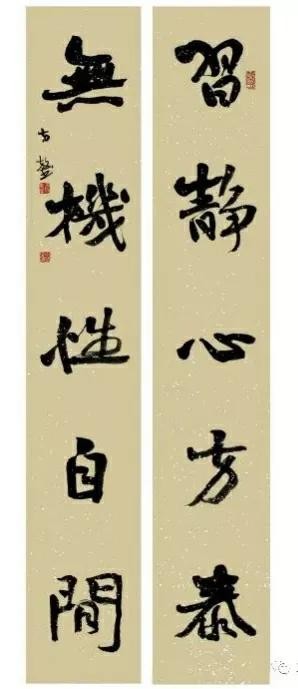 習靜心方泰
無機性自閒